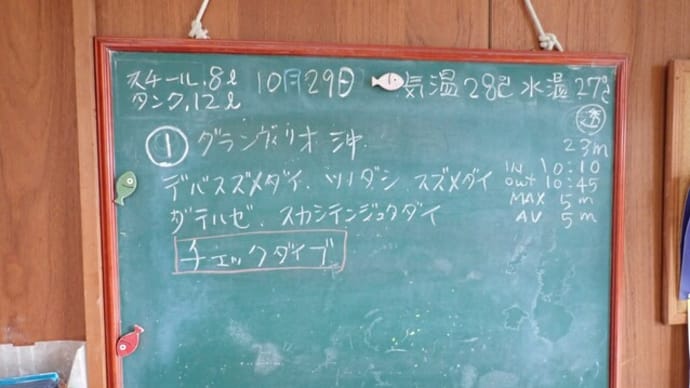 スチール.8ℓ 10月29日 気温28℃ 水温27℃
タンク.12ℓ
透
23m
① グランヴィリオ沖
IN 10:10
out 10:45
MAX 5m
AV 5m
デバスズメダイ、ツノダシ スズメダイ
ダテハゼ、スカシテンジュクダイ
チェックダイブ